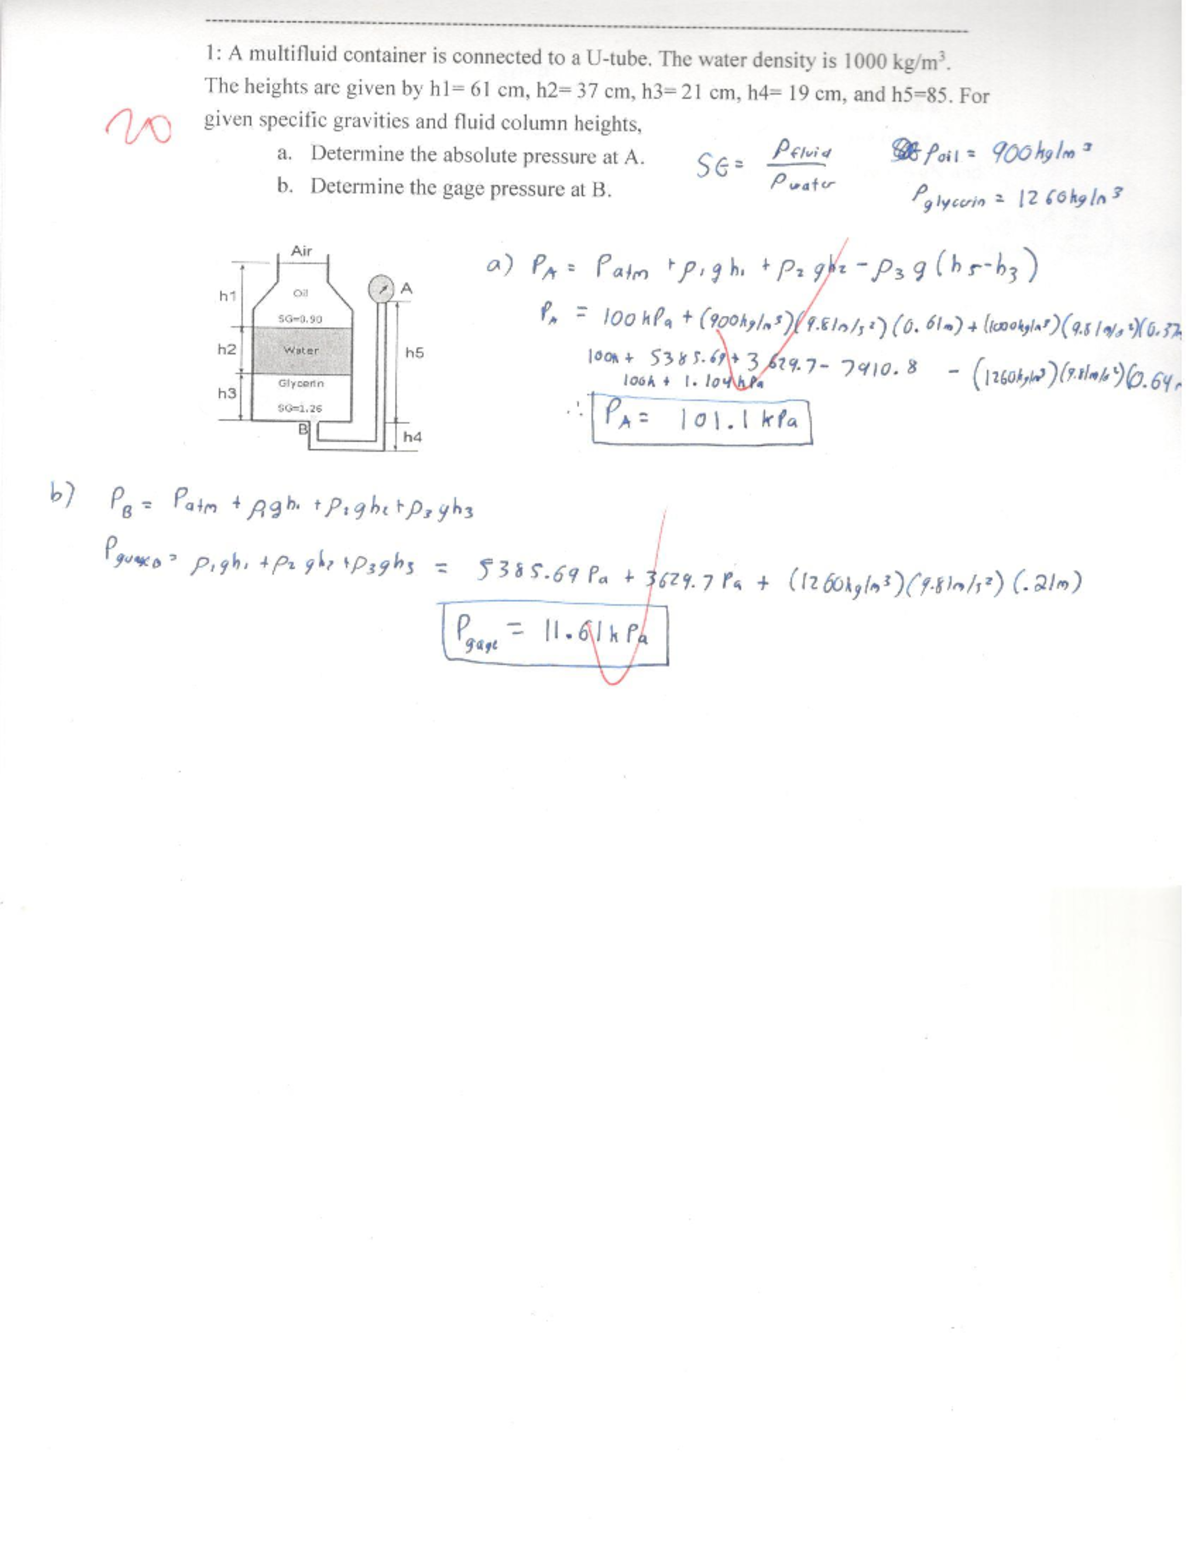 1: A multifluid container is connected to a U-tube. The water density is 1000 kg/m³.
The heights are given by h1= 61 cm, h2= 37 cm, h3= 21 cm, h4= 19 cm, and h5=85. For
20 given specific gravities and fluid column heights,
a. Determine the absolute pressure at A.
b. Determine the gage pressure at B.
SG = ρfluid / ρwater
ρoil = 900 kg/m³
ρglycerin = 1260 kg/m³
Air
h1
Oil
SG=0.90
A
h2
Water
h5
h3
Glycerin
SG=1.26
B
h4
a) PA = Patm + ρ1gh1 + ρ2gh2 - ρ3g(h5-h3)
PA = 100 kPa + (900kg/m³)(9.81m/s²)(0.61m) + (1000kg/m³)(9.81m/s²)(0.37m
100k + 5385.69 + 3629.7 - 7910.8 - (1260kg/m³)(9.81m/s²)(0.64m
100k + 1.104kPa
∴ PA = 101.1 kPa
b) PB = Patm + ρ1gh1 + ρ2gh2 + ρ3gh3
= ρ1gh1 + ρ2gh2 + ρ3gh3 = 5385.69 Pa + 3629.7 Pa + (1260kg/m³)(9.81m/s²)(.21m)
Pgage = 11.61 kPa